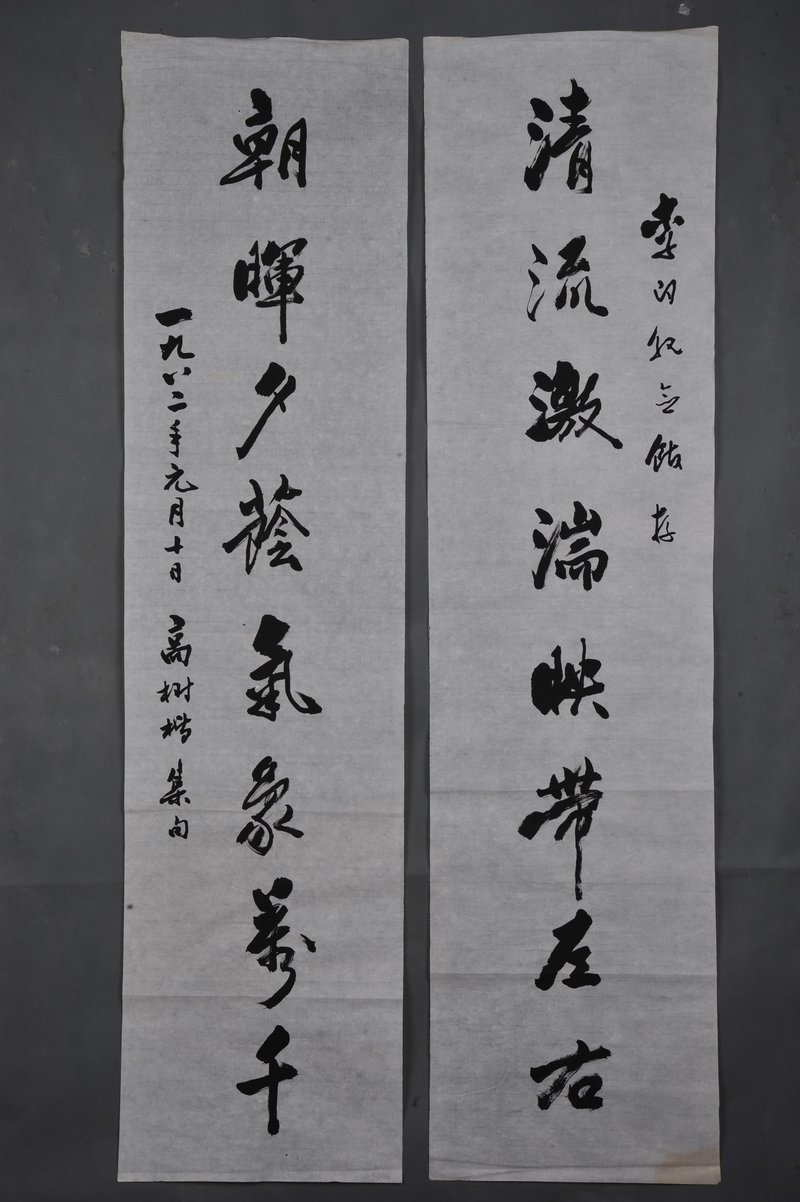 清流激湍映帶左右
李 紀念館存
朝暉夕蔭氣象萬千
一九八二年元月十日 高樹 集句